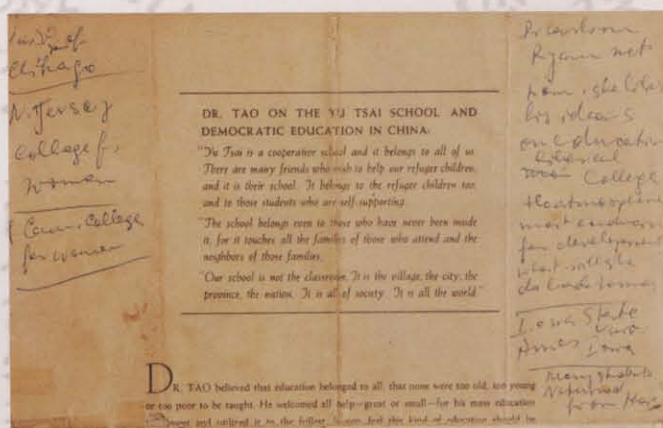 Chicago
N. Jersey
College f.
women
Conn. College
for women
DR. TAO ON THE YU TSAI SCHOOL AND
DEMOCRATIC EDUCATION IN CHINA:
"Yu Tsai is a cooperative school and it belongs to all of us.
There are many friends who wish to help our refugee children,
and it is their school. It belongs to the refugee children too,
and to those students who are self-supporting.
"The school belongs even to those who have never been inside
it, for it touches all the families of those who attend and the
neighbors of those families.
"Our school is not the classroom. It is the village, the city, the
province, the nation. It is all of society. It is all the world."
DR. TAO believed that education belonged to all, that none were too old, too young
or too poor to be taught. He welcomed all help—great or small—for his mass education
and utilized it to the fullest. feel this kind of education should be
met
she likes
his ideas
on education
College
most
for development
what will she
do
Iowa State
Ames Iowa
many students
returned
from